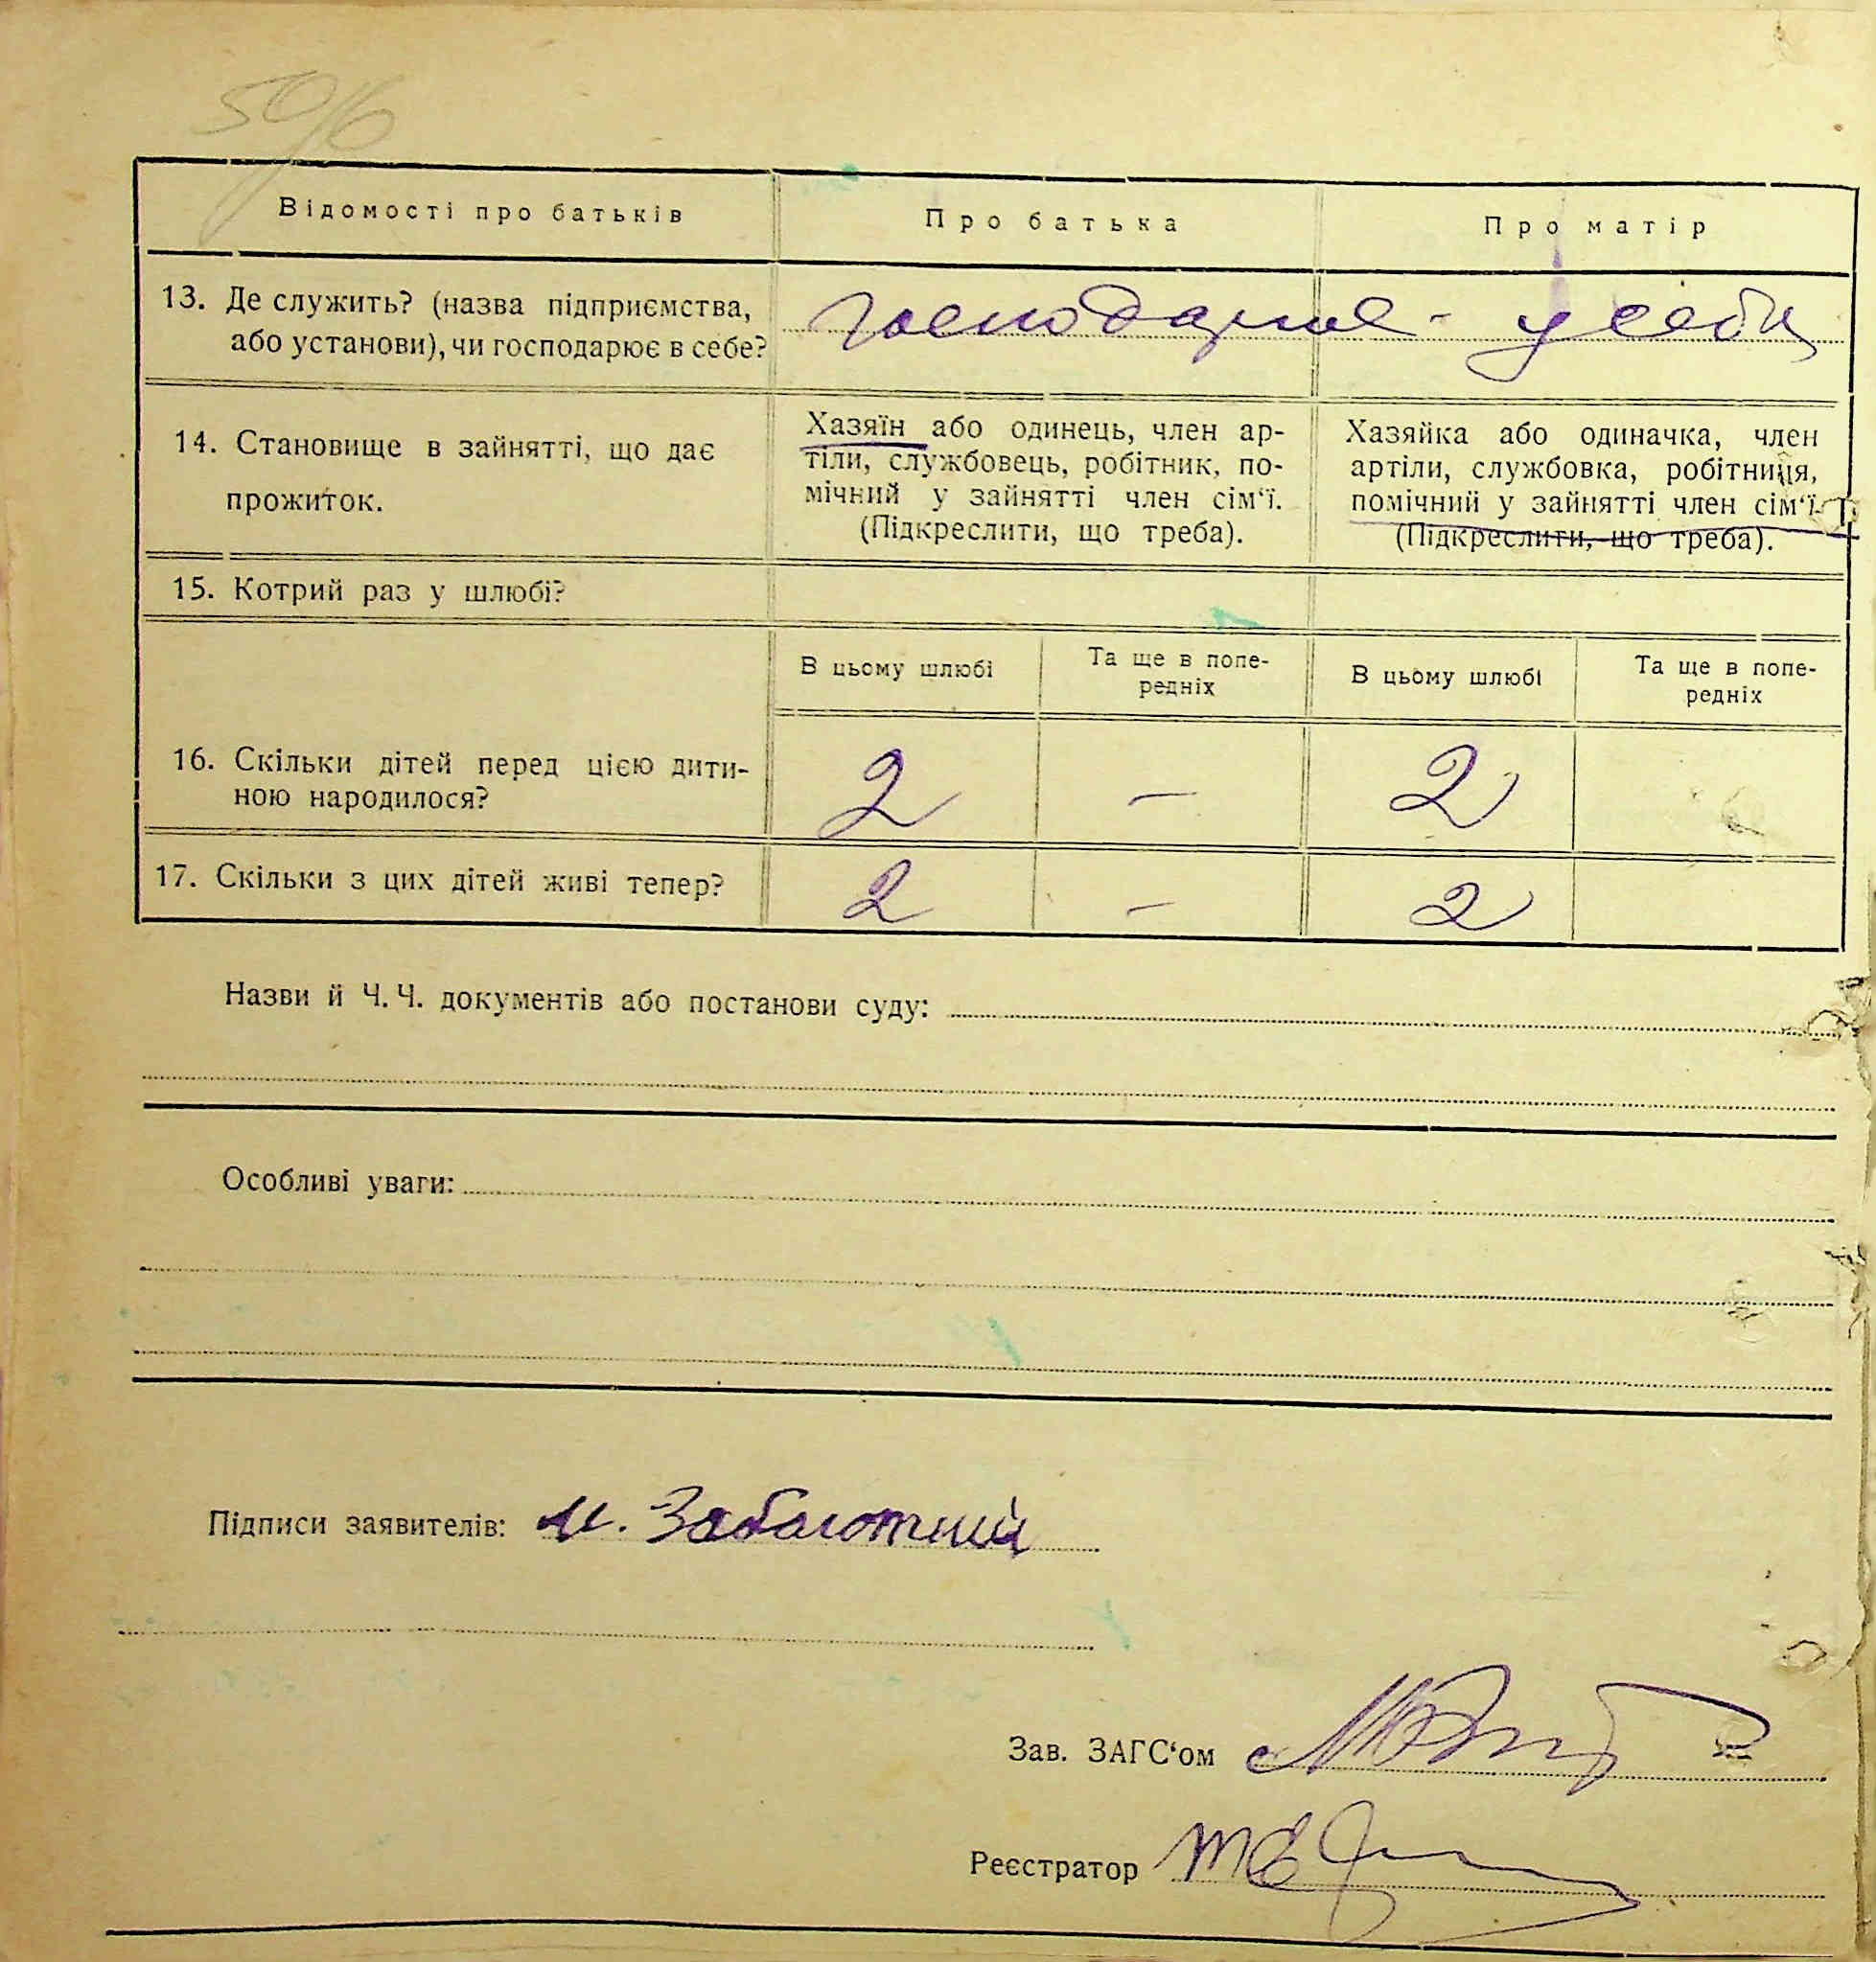 50/6
Відомості про батьків
Про батька
Про матір
13. Де служить? (назва підприємства,
або установи), чи господарює в себе?
господарює - у себе
14. Становище в зайнятті, що дає
прожиток.
Хазяїн або одинець, член ар-
тіли, службовець, робітник, по-
мічний у зайнятті член сім‘ї.
(Підкреслити, що треба).
Хазяйка або одиначка, член
артіли, службовка, робітниця,
помічний у зайнятті член сім‘ї.
(Підкреслити, що треба).
15. Котрий раз у шлюбі?
В цьому шлюбі
Та ще в попе-
редніх
В цьому шлюбі
Та ще в попе-
редніх
16. Скільки дітей перед цією дити-
ною народилося?
2 — 2
17. Скільки з цих дітей живі тепер?
2 — 2
Назви й Ч. Ч. документів або постанови суду:
Особливі уваги:
Підписи заявителів: И. Заболотний
Зав. ЗАГС‘ом
Реєстратор